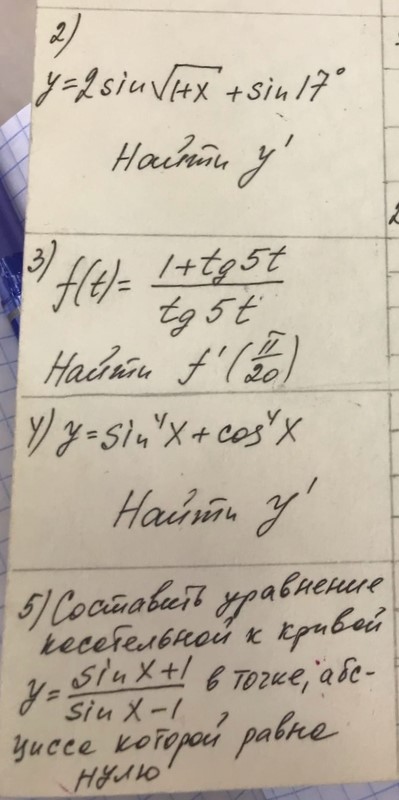 2)
y=2sin√1+x + sin17°
Найти y'
3) f(t)= 1+tg5t / tg5t
Найти f'(π/20)
4) y=sin⁴x+cos⁴x
Найти y'
5) Составить уравнение
касательной к кривой
y= sinx+1 / sinx-1 в точке, абс-
цисса которой равна
нулю